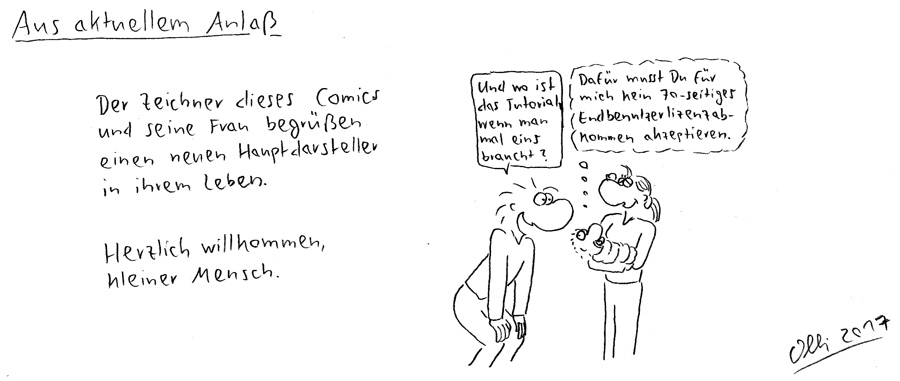 Aus aktuellem Anlaß
Der Zeichner dieses Comics
und seine Frau begrüßen
einen neuen Hauptdarsteller
in ihrem Leben.
Herzlich willkommen,
kleiner Mensch.
Und wo ist
das Tutorial,
wenn man
mal eins
braucht?
Dafür musst Du für
mich kein 70-seitiges
Endbenutzerlizenzab-
kommen akzeptieren.
Olli 2017